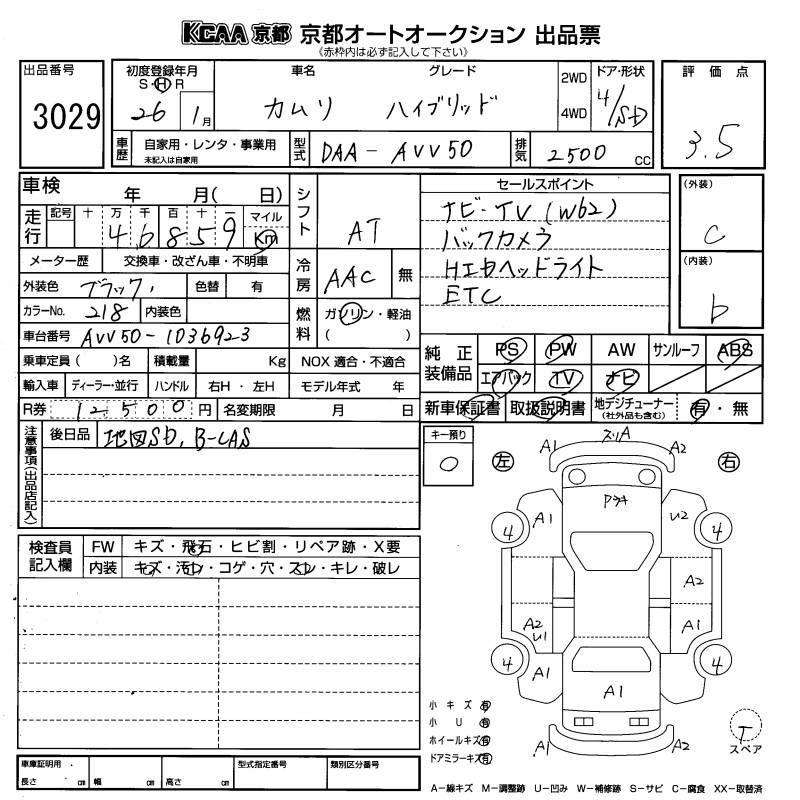 KCAA 京都 京都オートオークション 出品票
《赤枠内は必ず記入して下さい》
出品番号
3029
初度登録年月
S・H R
26 1月
車名
カムリ
グレード
ハイブリッド
2WD
4WD
ドア・形状
4/SD
評価点
3.5
車歴
自家用・レンタ・事業用
未記入は自家用
型式
DAA-AVV50
排気
2500 cc
車検
年 月( 日)
走行
記号 十 万 千 百 十 一 マイル
4 6 8 5 9 Km
メーター歴 交換車・改ざん車・不明車
外装色 ブラック 色替 有
カラーNo. 218 内装色
車台番号 AVV50-1036923
乗車定員 ( )名 積載量 Kg NOX 適合・不適合
輸入車 ディーラー・並行 ハンドル 右H・左H モデル年式 年
R券 12500 円 名変期限 月 日
シフト
AT
冷房
AAC 無
燃料
ガソリン・軽油
( )
セールスポイント
ナビ・TV(W62)
バックカメラ
HIDヘッドライト
ETC
(外装)
C
(内装)
b
純正装備品
PS PW AW サンルーフ ABS
エアバック TV ナビ
新車保証書 取扱説明書 地デジチューナー
(社外品も含む) 有・無
注意事項(出品店記入)
後日品 地図SD, B-CAS
キー預り
○
検査員記入欄
FW キズ・飛石・ヒビ割・リペア跡・X要
内装 キズ・汚レ・コゲ・穴・スレ・キレ・破レ
左
右
A1 スリA A2
Pヌキ
A1 U2
4 4
A2
A2 A1
U1
4 4
A1 A1
A1 A2
小キズ 有
小U 有
ホイールキズ 有
ドアミラーキズ 有
T
スペア
車庫証明用
長さ cm 幅 cm 高さ cm
型式指定番号
類別区分番号
A-線キズ M-調整跡 U-凹み W-補修跡 S-サビ C-腐食 XX-取替済